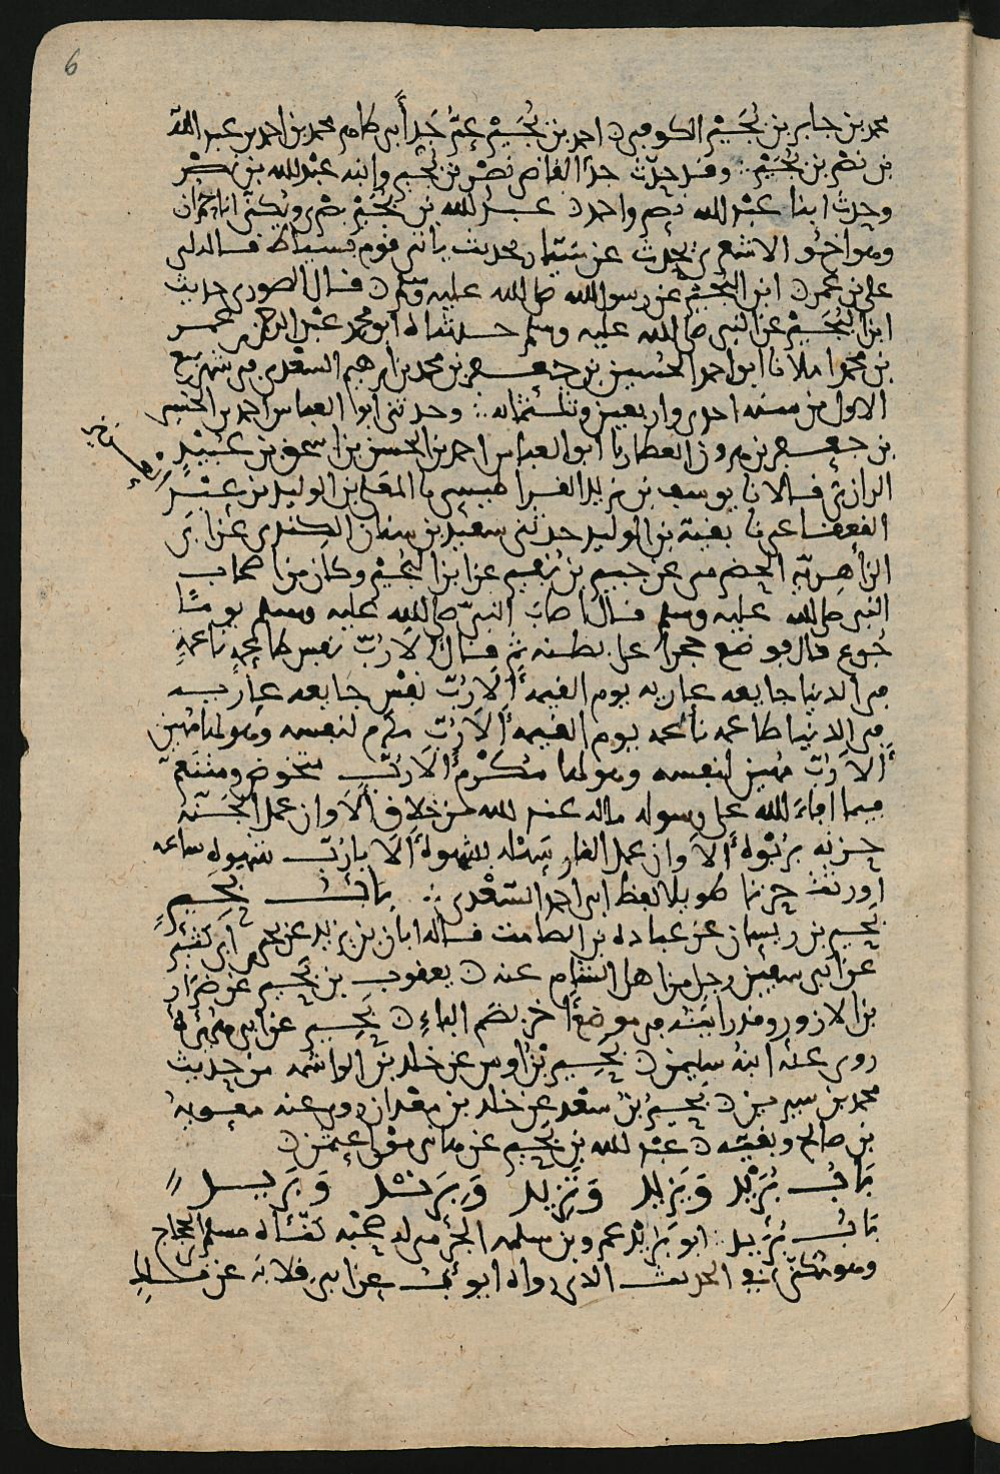 6
محمد بن جابر بن بجير الكوفي ۞ احمد بن بجير عمّ جد أبي طاهر محمد بن احمد بن عبد الله
بن نصر بن بجير ∴ وقد حدّث جدّ القاضي نصر بن بجير وابنه عبد الله بن نصر
وحدث ابنا عبد الله نصر واحمد ۞ عبد الله بن بجير بصري ويكنى ابا حمران
وهو اخو الاشعري يحدث عن سيار بحديث ياتي قوم بسياط قاله لي
علي بن عمر ۞ ابن البجير عن رسول الله صلى الله عليه وسلم ۞ قال الصوري حديث
ابن البجير عن النبي صلى الله عليه وسلم حدثناه ابو محمد عبد الرحمن بن عمر
بن محمد املا نا ابو احمد الحسين بن جعفر بن محمد بن ابرهيم السعدي في شهر ربيع
الاول من سنه احدى واربعين وثلثمائه ∴ وحدثني ابو العباس احمد بن الحسن
بن جعفر بن هرون العطار نا ابو العباس احمد بن الحسن بن اسحق بن عبيد
الرازي قالا نا يوسف بن يزيد القراطيسي نا المعلى بن الوليد بن
القعقاعي نا بقية بن الوليد حدثني سعيد بن سنان الكندي عن ابي
الزاهريه الحضرمي عن جبير بن نفير عن ابن البجير وكان من اصحاب
النبي صلى الله عليه وسلم قال اصاب النبيّ صلى الله عليه وسلم يومًا
جوع قال فوضع حجرا على بطنه ثم قال ألا ربّ نفس طاعمه ناعمة
في الدنيا جايعه عاريه يوم القيمه ألا ربّ نفس جايعه عاريه
في الدنيا طاعمه ناعمه يوم القيمه ألا ربّ مكرم لنفسه وهو لها مهين
ألا ربّ مهين لنفسه وهو لها مكرم ألا ربّ متخوض ومتنعم
فيما افاء الله على رسوله ماله عند الله من خلاق ألا وان عمل الجنّه
حزنه بربوة ألا وان عمل النار سهله بشهوة ألا يا ربّ شهوة ساعه
اورثت حزنا طويلا لفظ ابي احمد السعدي ∴ بابُ بَحِير
بحير بن ريسان عن عباده بن الصامت قاله ابان بن يزيد عن يحيى بن أبي كثير
عن ابي سفين رجل من اهل الشام عنه ۞ يعقوب بن بحير عن ضرار
بن الازور وقد رايته في موضع اخر بضم الباء ۞ بحير عن ابي هريرة
روى عنه ابنه سليمن ۞ بحير بن اوس عن خلد بن الواشمه من حديث
محمد بن سيرين ۞ بحير بن سعد عن خلد بن معدان روى عنه معويه
بن صالح وبقيه ۞ عبد الله بن بحير عن هاني مولى عثمن ۞
بَابُ بُرَيْد وَيَزيد وَتَزيد وَبِرَنْد وَبَريد
بَابُ بُرَيد ∴ ابو بُرَيْد عمرو بن سلمه الجرمي له صحبه كنّاه مسلم بن الحجاج
وهو مكنّى في الحديث الذي رواه ايوب عن ابي قلابه عن مالك